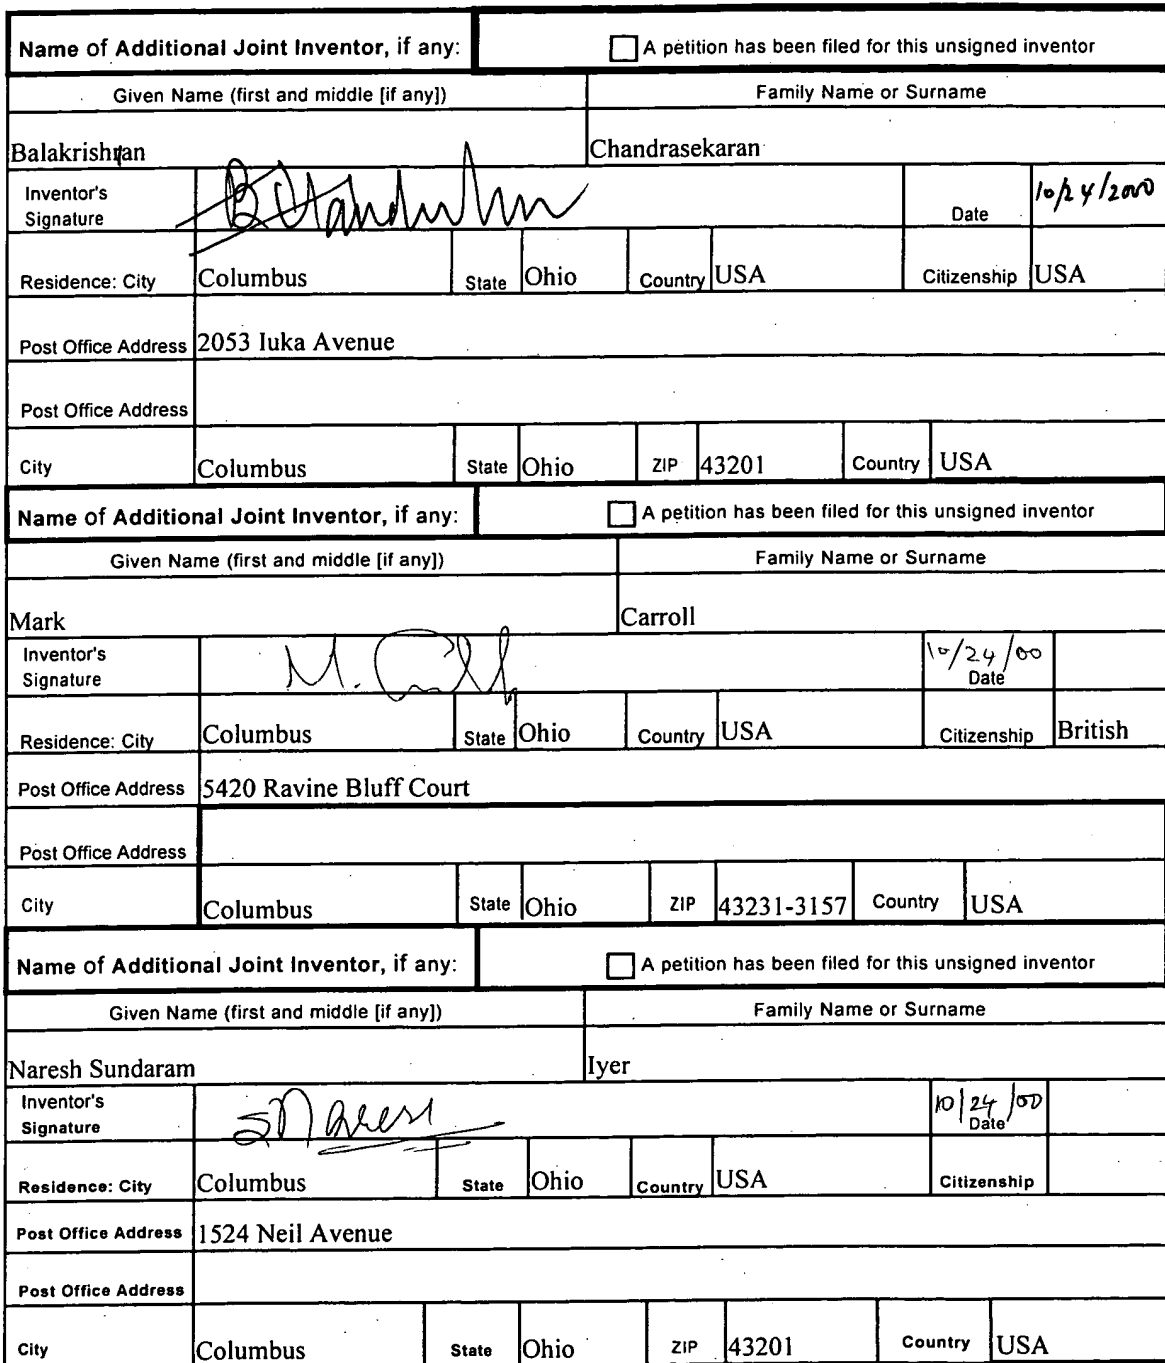 Name of Additional Joint Inventor, if any: A petition has been filed for this unsigned inventor
Given Name (first and middle [if any]) Family Name or Surname
Balakrishnan Chandrasekaran
Inventor's Signature Date 10/24/2000
Residence: City Columbus State Ohio Country USA Citizenship USA
Post Office Address 2053 Iuka Avenue
Post Office Address
City Columbus State Ohio ZIP 43201 Country USA
Name of Additional Joint Inventor, if any: A petition has been filed for this unsigned inventor
Given Name (first and middle [if any]) Family Name or Surname
Mark Carroll
Inventor's Signature M. 10/24/00 Date
Residence: City Columbus State Ohio Country USA Citizenship British
Post Office Address 5420 Ravine Bluff Court
Post Office Address
City Columbus State Ohio ZIP 43231-3157 Country USA
Name of Additional Joint Inventor, if any: A petition has been filed for this unsigned inventor
Given Name (first and middle [if any]) Family Name or Surname
Naresh Sundaram Iyer
Inventor's Signature 10/24/00 Date
Residence: City Columbus State Ohio Country USA Citizenship
Post Office Address 1524 Neil Avenue
Post Office Address
City Columbus State Ohio ZIP 43201 Country USA